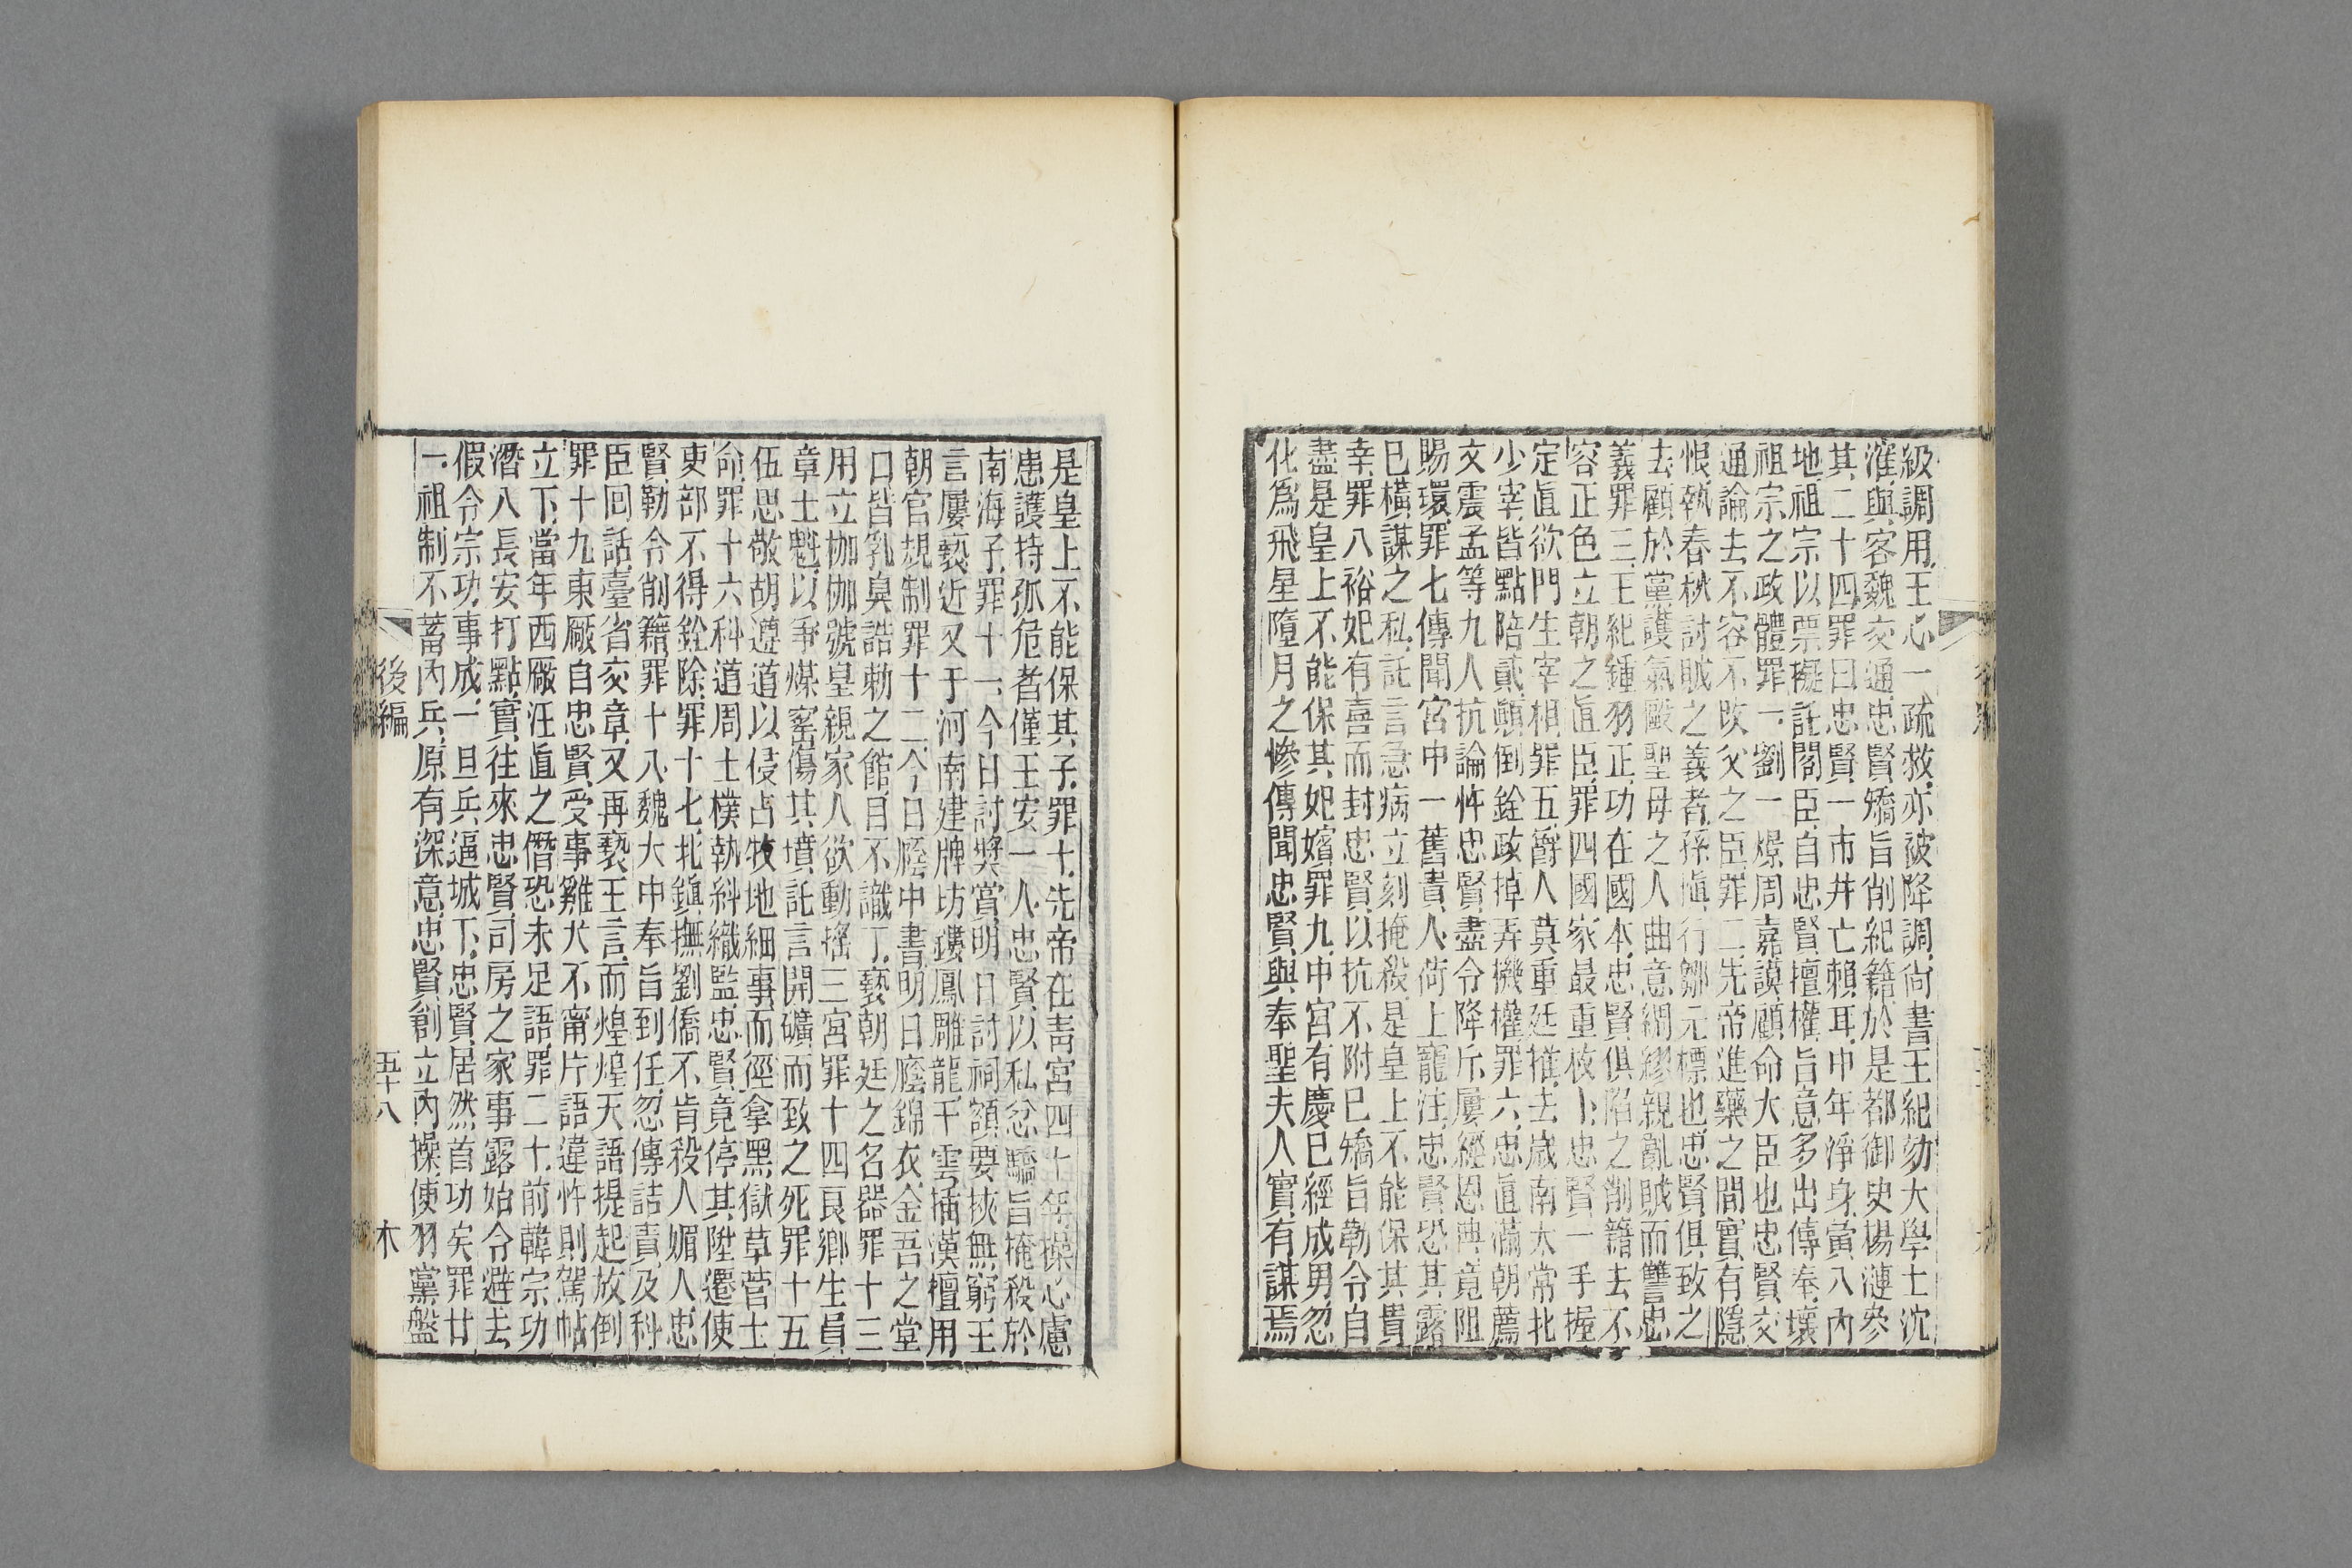 級調用王心一疏救亦被降調尚書王紀劾大學士沈
㴶與客魏交通忠賢矯旨削紀籍於是都御史楊漣參
其二十四罪曰忠賢一市井亡賴耳中年淨身寅入內
地祖宗以票擬託閣臣自忠賢擅權旨意多出傳奉壞
祖宗之政體罪一劉一燝周嘉謨顧命大臣也忠賢交
通論去不容不改父之臣罪二先帝進藥之間實有隱
恨執春秋討賊之義者孫慎行鄒元標也忠賢俱致之
去顧於黨護氣毆聖母之人曲意綢繆親亂賊而讐忠
義罪三王紀鍾羽正功在國本忠賢俱陷之削籍去不
容正色立朝之直臣罪四國家最重枚卜忠賢一手握
定眞欲門生宰相罪五爵人莫重廷推去歲南太常北
少宰皆點陪貳顚倒銓政掉弄機權罪六忠直滿朝薦
文震孟等九人抗論忤忠賢盡令降斥屢經恩典竟阻
賜環罪七傳聞宮中一舊貴人荷上寵汪忠賢恐其露
已橫謀之私託言急病立刻掩殺是皇上不能保其貴
幸罪八裕妃有喜而封忠賢以抗不附已矯旨勒令自
盡是皇上不能保其妃嬪罪九中宮有慶已經成男忽
化爲飛星隨月之慘傳聞忠賢與奉聖夫人實有謀焉
是皇上不能保其子罪十先帝在靑宮四十年操心慮
患護持孤危者僅王安一人忠賢以私忿驕旨掩殺於
南海子罪十一今日討奬賞明日討祠額要挾無窮王
言屢褻近又于河南建牌坊鏤鳳雕龍干雲插漢擅用
朝官規制罪十二今日廕中書明日廕錦衣金吾之堂
口皆乳臭誥勅之館目不識丁褻朝廷之名器罪十三
用立枷枷號皇親家人欲動搖三宮罪十四良鄉生員
章士魁以爭煤窰傷其墳託言開礦而致之死罪十五
伍思敬胡遵道以侵占牧地細事而徑拿黑獄草菅士
命罪十六科道周士樸執糾織監忠賢竟停其陞遷使
吏部不得銓除罪十七北鎮撫劉僑不肯殺人媚人忠
賢勒令削籍罪十八魏大中奉旨到任忽傳詰責及科
臣回話臺省交章又再褻王言而煌煌天語提起放倒
罪十九東廠自忠賢受事雞犬不甯片語違忤則駕帖
立下當年西廠汪直之僭恐未足語罪二十前韓宗功
潛入長安打點實往來忠賢司房之家事露始令避去
假令宗功事成一旦兵逼城下忠賢居然首功矣罪廿
一祖制不蓄內兵原有深意忠賢創立內操使羽黨盤
後編 五十八 木